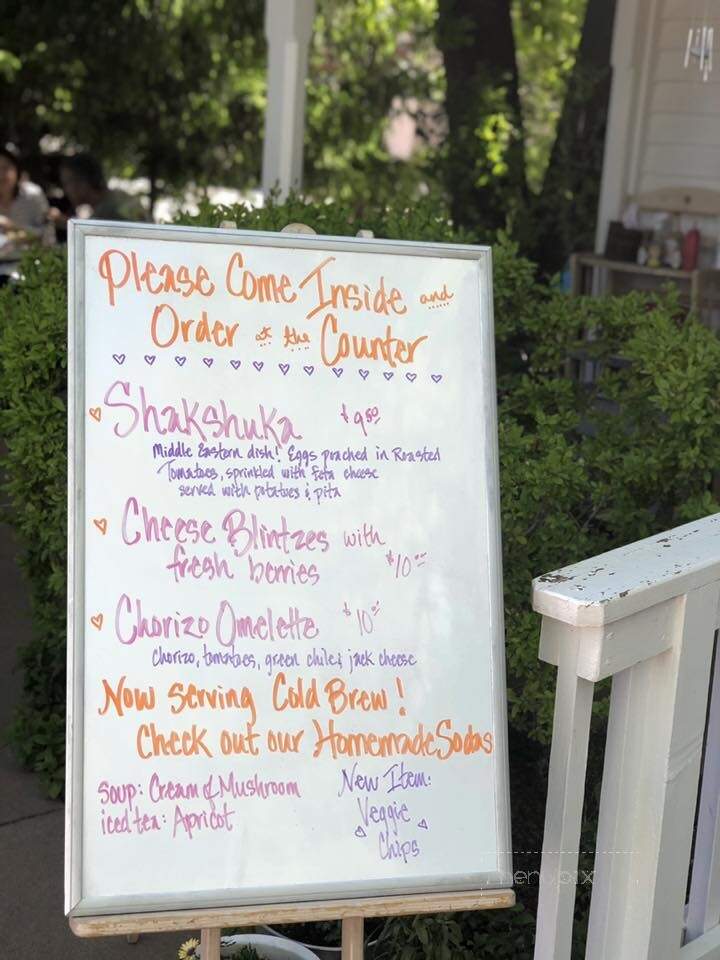 Please Come Inside and
Order at the Counter
Shakshuka $9.50
Middle Eastern dish! Eggs poached in Roasted
Tomatoes, sprinkled with feta cheese
served with potatoes & pita
Cheese Blintzes with
fresh berries $10.00
Chorizo Omelette $10.00
Chorizo, tomatoes, green chiles, jack cheese
Now Serving Cold Brew!
Check out our Homemade Sodas
Soup: Cream of Mushroom
iced tea: Apricot
New Item:
Veggie
Chips
menupix